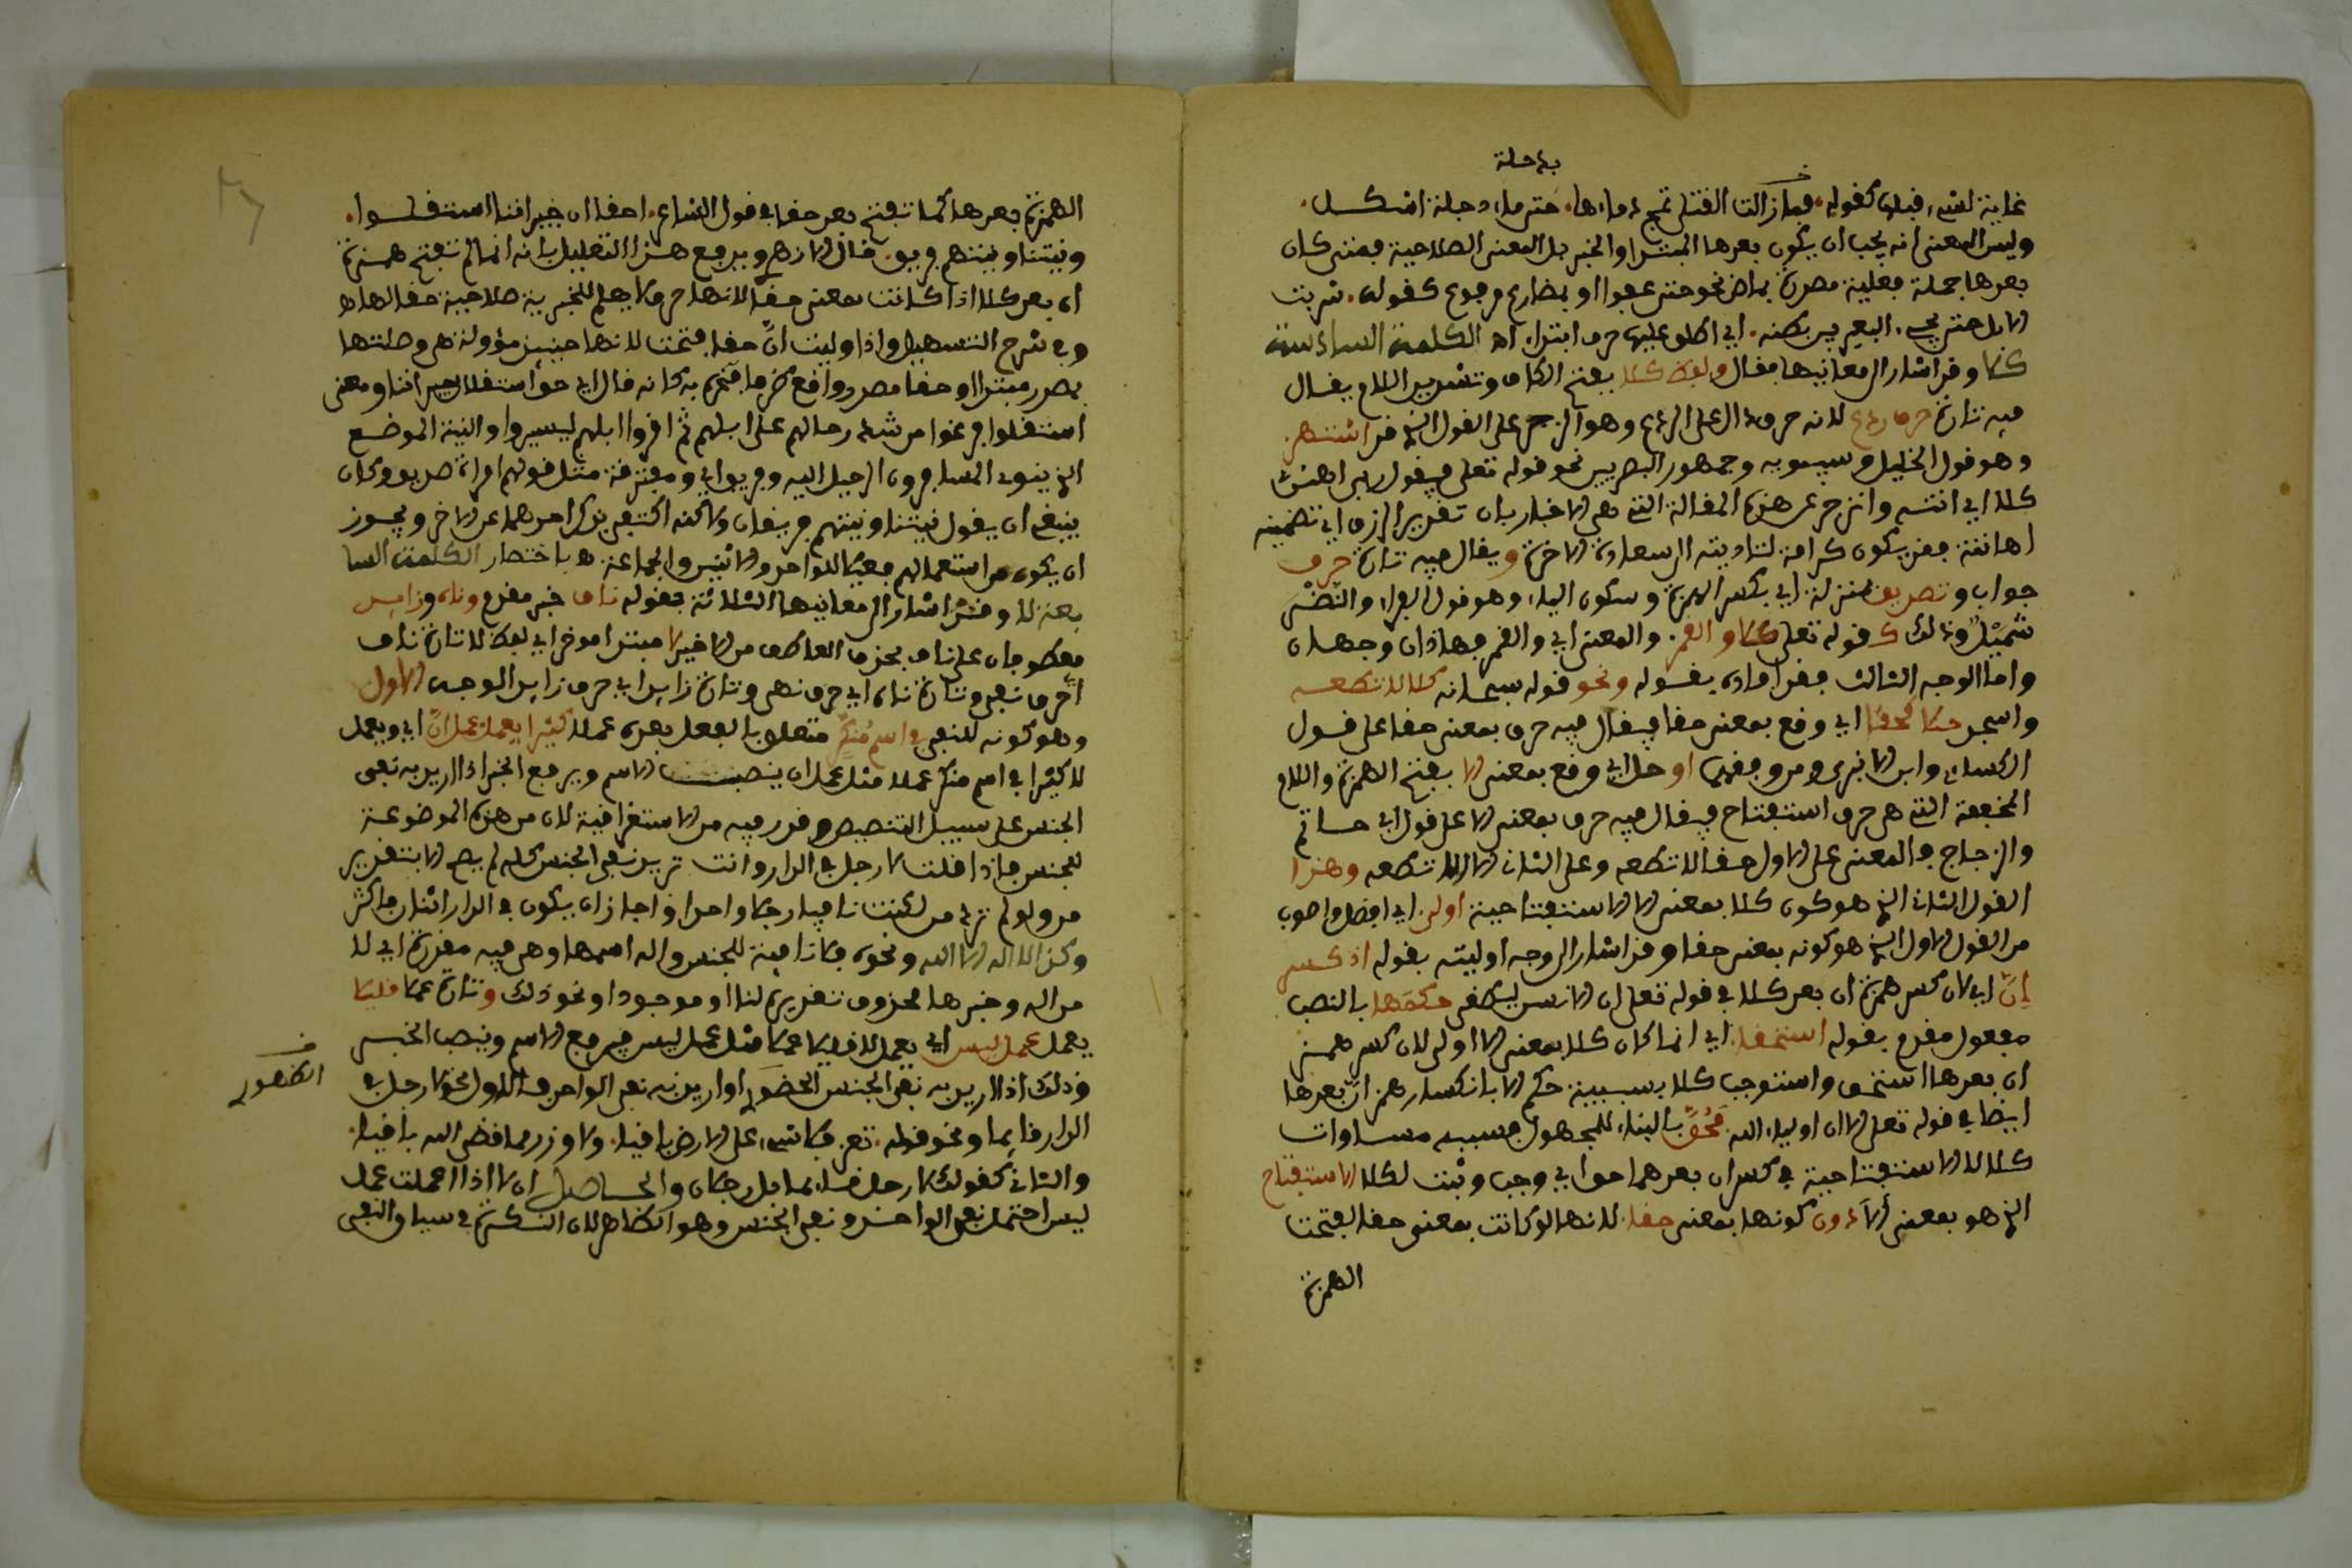 بدجلة
غاية لشيء قبلها كقوله فما زالت القتلى تمج دماءها حتى ماء دجلة اشكل
وليس المعنى انه يجب ان يكون بعدها المبتدا والخبر بل المعنى الصلاحية فمتى كان
بعدها جملة فعلية مصدرة بماض نحو حتى عفوا او بمضارع مرفوع كقولك شربت
الابل حتى يجيء البعير يجر بطنه اي اطلق عليها حرف ابتداء اه الكلمة السادسة
كلا وقد اشار الى معانيها فقال ولفظ كلا بفتح الكاف وتشديد اللام يقال
فيه تارة حرف ردع لانه حرف دال على الردع وهو الزجر على القول الذي قد اشتهر
وهو قول الخليل وسيبويه وجمهور البصريين نحو قوله تعلى فيقول ربي اهانن
كلا اي انته وانزجر عن هذه المقالة التي هي الاخبار بان تقدير الرزق اي تضييقه
اهانة فقد يكون كرامة لتاديته الى سعادة الاخرة ويقال فيه تارة حرف
جواب وتصديق بمنزلة اي بكسر الهمزة وسكون الياء وهو قول الفراء والنضر بن
شميل وذلك كقوله تعلى كلا والقمر والمعنى اي والقمر فهاذان وجهان
واما الوجه الثالث فقد افاده بقوله ونحو قوله سبحانه كلا لا تطعه
واسجد حكا لحقا اي وقع بمعنى حقا فيقال فيه حرف بمعنى حقا على قول
الكسائي وابن الانباري ومن وافقهما او حل اي وقع بمعنى الا بفتح الهمزة واللام
المخففة التي هي حرف استفتاح فيقال فيه حرف بمعنى الا على قول ابي حاتم
والزجاج والمعنى على الاول حقا لا تطعه وعلى الثاني الا لا تطعه وهذا
القول الثاني الذي هو كون كلا بمعنى الا الاستفتاحية اولى اي افضل واصوب
من القول الاول الذي هو كونه بمعنى حقا وقد اشار الى وجه اوليته بقوله اذ كسر
إنّ اي لان كسر همزة ان بعد كلا في قوله تعلى ان الانسن ليطغى حكمها بالنصب
مفعول مقدم بقوله استحقا اي انما كان كلا بمعنى الا اولى لان كسر همز
ان بعدها استحق واستوجب كلا بسببية حكم الا بانكسار همز انّ بعدها
ايضا في قوله تعلى الا ان اولياء الله فحق بالبناء للمجهول بسببه مساوات
كلا للا الاستفتاحية في كسر ان بعدهما حق اي وجب وثبت لكلا الاستفتاح
الذي هو بمعنى ألا دون كونها بمعنى حقا لانها لو كانت بمعنى حقا لفتحت
الهمزة
الهمزة بعدها كما تفتح بعد حقا في قول الشاعر احقا ان جيراننا استقلوا
ونيتنا ونيتهم فريق قال الازهري ويدفع هذا التعليل بانه انما لم تفتح همزة
ان بعد كلا اذا كانت بمعنى حقا لانها حرف لا يصلح للخبرية صلاحية حقا لها اه
وفي شرح التسهيل واذا وليت انّ حقا فتحت لانها حينئذ مؤولة هي وصلتها
بمصدر مبتدا وحقا مصدر واقع ظرفا مخبرا به كانه قال افي حق استقلال جيراننا ومعنى
استقلوا فرغوا من شد رحالهم على ابلهم ثم اقروا ابلهم ليسيروا والنية الموضع
الذي ينوي المسافرون الرحيل اليه وفريق اي ومفترقة مثل قولهم امراة صديق وكان
ينبغي ان يقول نيتنا ونيتهم فريقان ولاكنه اكتفى بذكر احدهما عن الاخر ويجوز
ان يكون من استعمالهم فعيلا للواحد والاثنين والجماعة اه باختصار الكلمة السا
بعة لا وقد اشار الى معانيها الثلاثة بقوله ناف خبر مقدم وناه وزايد
معطوفان على ناف بحذف العاطف من الاخير لا مبتدا مؤخر اي لفظ لا تارة ناف
اي حرف نفي وتارة ناه اي حرف نهي وتارة زايد اي حرف زايد الوجه الاول
وهو كونه للنفي في اسم منكر متعلق بالفعل بعده عملا كثيرا يعمل عمل انّ اي ويعمل
لا كثيرا في اسم منكر عملا مثل عمل ان ينصب الاسم ويرفع الخبر اذا اريد به نفي
الجنس على سبيل التنصيص وقدر فيه من الاستغراقية لان من هذه الموضوعة
للجنس فاذا قلت لا رجل في الدار وانت تريد نفي الجنس كله لم يصح الا بتقدير
من ولو لم ترد من لكنت نافيا رجلا واحدا وجاز ان يكون في الدار اثنان فاكثر
وكذا لا اله الا الله ونحوه فلا نافية للجنس واله اسمها وهي فيه مقدرة اي لا
من اله وخبرها محذوف تقديره لنا او موجود او نحو ذلك وتارة عملا قليلا
يعمل عمل ليس اي يعمل لا قليلا عملا مثل عمل ليس فيرفع الاسم وينصب الخبر
وذلك اذا اريد به نفي الجنس الحضور او اريد به نفي الواحد فالاول نحو لا رجل في
الظهور
الدار قايما ونحو قوله تعز فلا شيء على الارض باقيا ولا وزر مما قضى الله باقيا
والثاني كقولك لا رجل قائما بل رجلان والحاصل ان لا اذا اعملت عمل
ليس احتمل نفي الواحد ونفي الجنس وهو الظاهر لان النكرة في سياق النفي